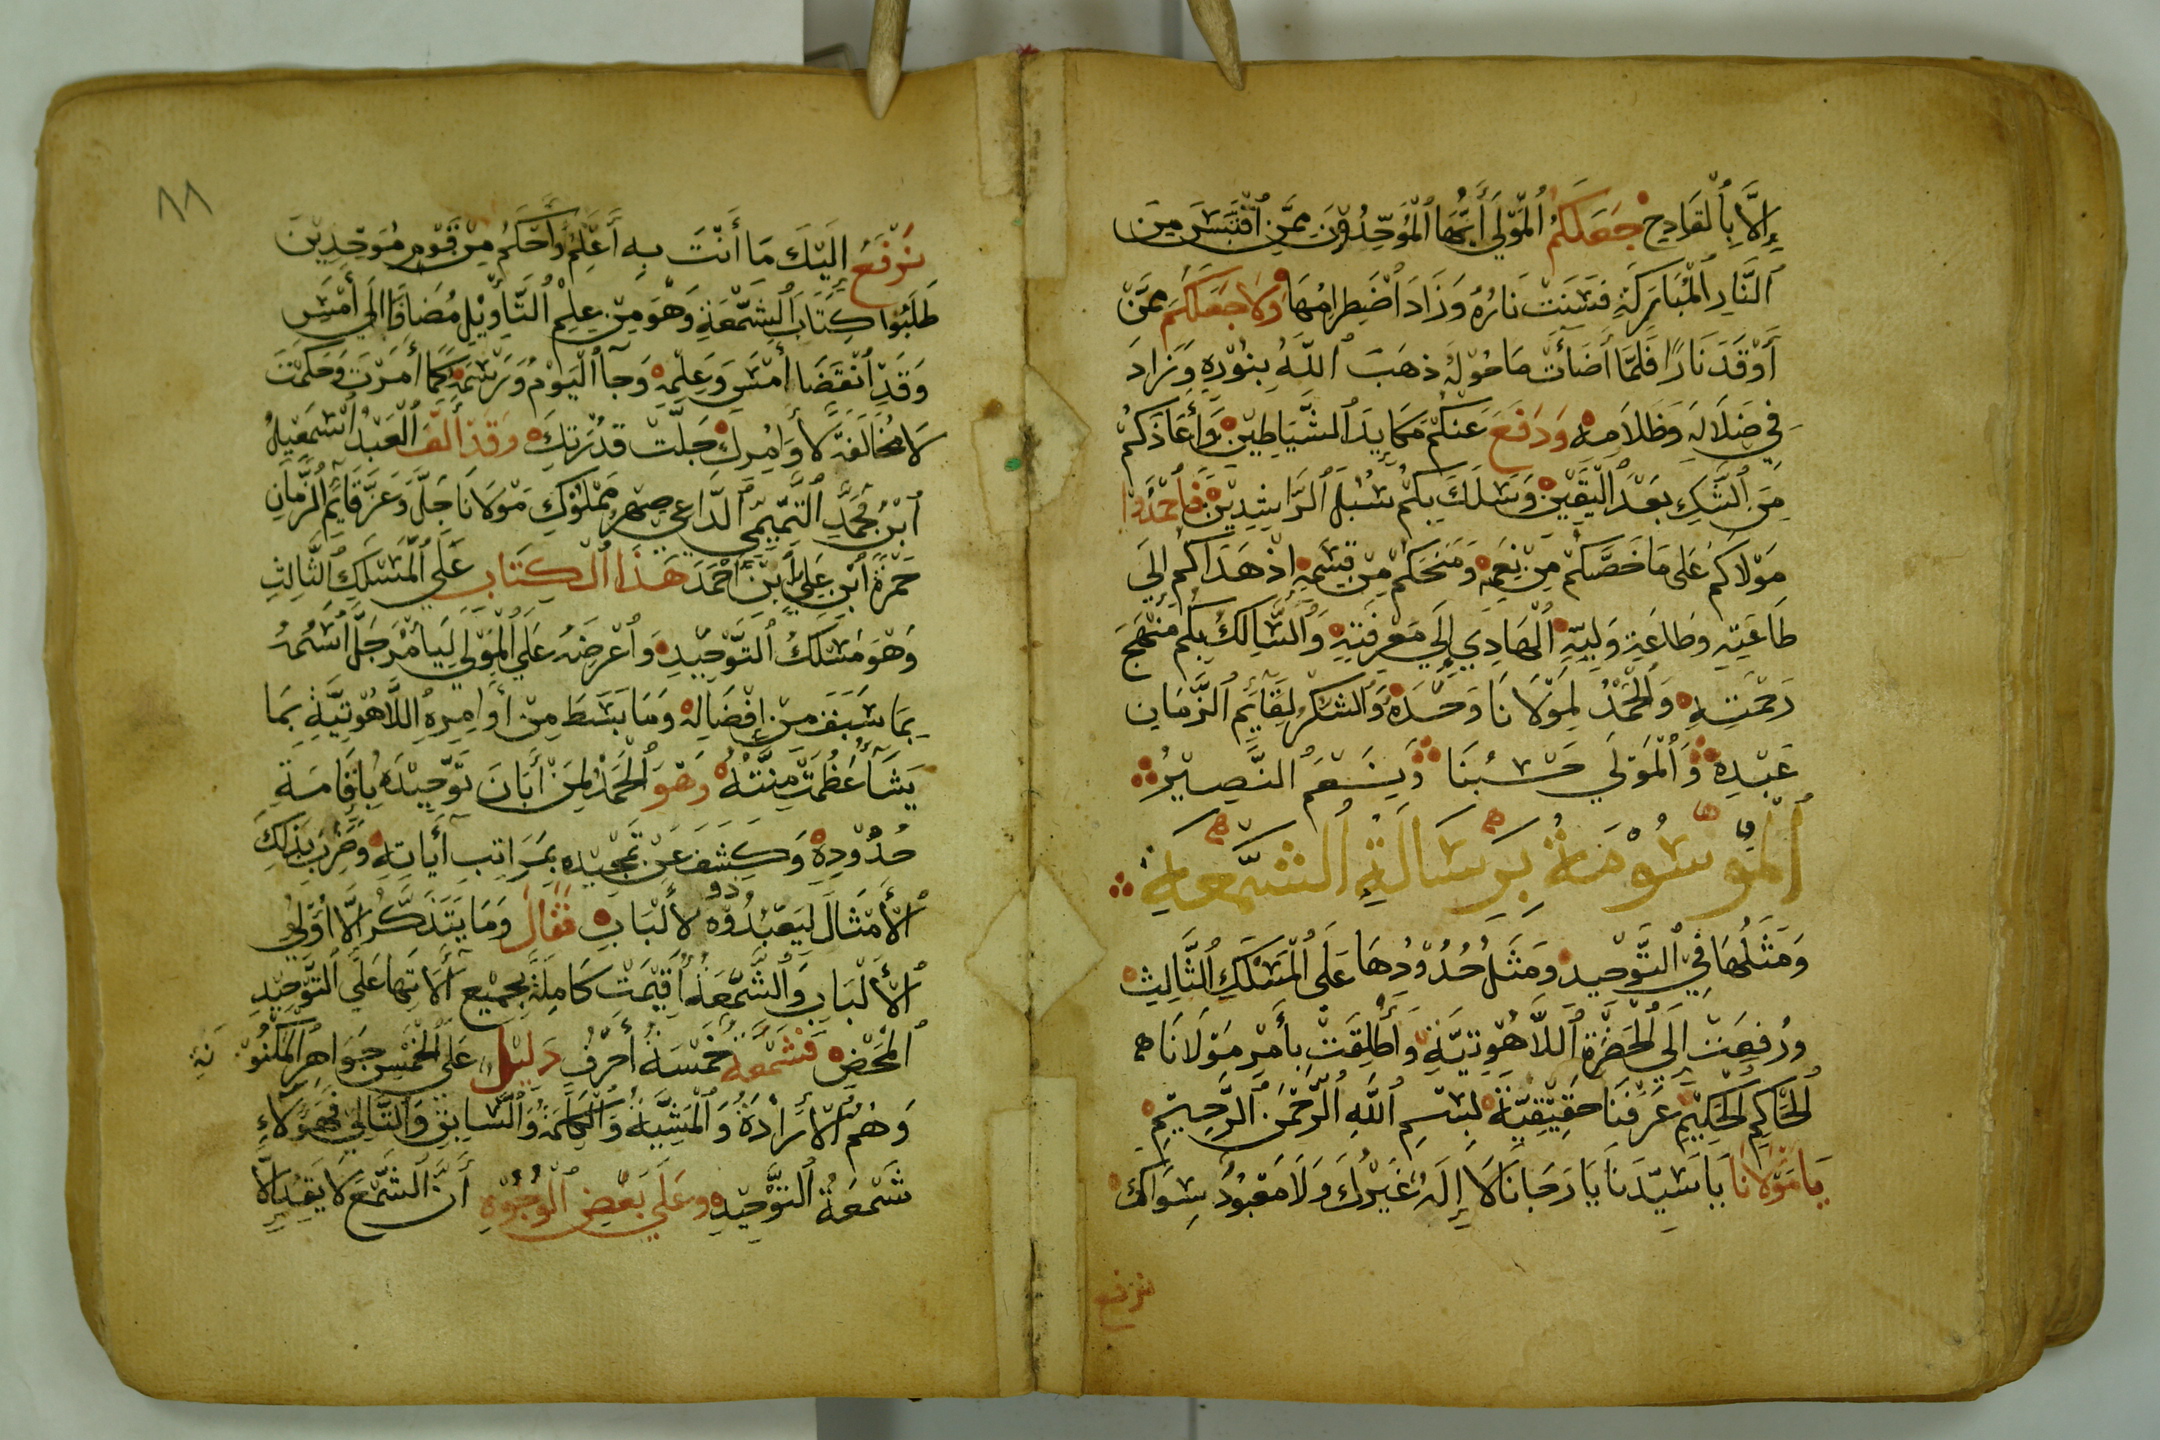 إِلَّا بِالْقَادِحِ جَعَلَكُمُ الْمَوْلَى أَيُّهَا الْمُوَحِّدُوْنَ مِمَّنِ اقْتَبَسَ مِنَ
النَّارِ الْمُبَارَكَةِ فَسَنَتْ نَارُهُ وَزَادَ اضْطِرامُهَا وَلَا جَعَلَكُمْ مِمَّنْ
أَوْقَدَ نَارًا فَلَمَّا أَضَأَتْ مَا حَوْلَهُ ذَهَبَ اللَّهُ بِنُوْرِهِ وَزَادَ
فِي ضَلَالَهِ وَظَلَامِهِ وَدَفَعَ عَنْكُمْ مَكَايِدَ الْشَّيَاطِيْنِ وَأَعَاذَكُمْ
مِنَ الشَّكِ بَعْدَ الْيَقِيْنِ وَسَلَكَ بِكُمْ سُبُلَ الرَّاشِدِيْنَ فَاحْمَدُوْا
مَوْلَاكُمْ عَلَى مَا خَصَّكُمْ مِنْ نِعَمِهِ وَمَنَحَكُمْ مِنْ قِسَمِهِ إِذْ هَدَاكُمْ إِلَى
طَاعَتِهِ وَطَاعَةِ وَلِيِّهِ الْهَادِي إِلَى مَعْرِفَتِهِ وَالسَّالِكُ بِكُمْ مَنْهَجَ
رَحْمَتِهِ وَالْحَمْدُ لِمَوْلَانَا وَحْدَهُ وَالشُّكْرُ لِقَايِمِ الزَّمَانِ
عَبْدِهِ وَالْمَوْلَى حَسْبُنَا وَنِعْمَ النَّصِيْرُ
الْمَوْسُوْمَةُ بِرِسَالَةِ الشَّمْعَةِ
وَمَثَلُهَا فِي التَّوْحِيدِ وَمَثَلُ حُدُوْدِهَا عَلَى الْمَسْلَكِ الثَّالِثِ
وَرُفِعَتْ إِلَى الْحَضْرَةِ اللَّاهُوْتِيَّةِ وَأُطْلِقَتْ بِأَمْرِ مَوْلَانَا
الْحَاكِمِ الْحَكِيْمِ عَرَّفَنَا حَقِيْقِيَّةً لِبِسْمِ اللَّهِ الرَّحْمَنِ الرَّحِيْمِ
يَا مَوْلَانَا يَا سَيِّدَنَا يَا رَجَانَا لَا إِلَهَ غَيْرُكَ وَلَا مَعْبُوْدَ سِوَاكَ
نرفع
٨٨
نَرْفَعُ إِلَيْكَ مَا أَنْتَ بِهِ أَعْلَمُ وَأَحْكَمُ مِنْ قَوْمٍ مُوَحِّدِيْنَ
طَلَبُوا كِتَابَ الشَّمْعَةِ وَهُوَ مِنْ عِلْمِ التَّأْوِيْلِ مُضَافًا إِلَى أَمْسِ
وَقَدِ انْقَضَا أَمْسِ وَعِلْمِهِ وَجَآ الْيَوْمُ وَرَسْمِهِ كَمَا أَمَرْتَ وَحَكَمْتَ
لَا مُخَالَفَةً لَأَوَامِرِكَ جَلَّتْ قُدْرَتِكَ وَقَدْ أَلَّفَ الْعَبْدُ اسْمَعِيلُ
ابْنُ مُحَمَّدِ التَّمِيْمِي الدَّاعِي صِهْرُ مَمْلُوْكِ مَوْلَانَا جَلَّ وَعَزَّ قَايِمِ الزَّمَانِ
حَمْزَةُ ابْنِ عَلِيِّ ابْنِ أَحْمَدَ هَذَا الْكِتَابِ عَلَى الْمَسْلَكِ الثَّالِثِ
وَهْوَ مَسْلَكُ التَّوْحِيْدِ وَاعْرِضَهُ عَلَى الْمَوْلَى لِيَأْمُرَ جَلَّ اسْمُهُ
بِمَا سَبَقَ مِنْ إِفْضَالِهِ وَمَا بَسَطَ مِنْ أَوَامِرِهِ اللَّاهُوْتِيَّةِ بِمَا
يَشَآءُ عَظُمَتْ مِنَّتُهُ وَهْوَ الْحَمْدُ لِمَنْ أَبَانَ تَوْحِيْدَهُ بِإِقَامَةِ
حُدُوْدِهِ وَكَشَفَ عَنْ تَمْجِيْدِهِ بِمَرَاتِبِ أَيَاتِهِ وَضَرَبَ بِذَلِكَ
الْأَمْثَالَ لِيَعْبُدُوْهُ ذوو لأَلْبَابِ فَقَالَ وَمَا يَتَذَكَّرُ إِلَّا أُوْلِي
الْأَلْبَابِ وَالشَّمْعَةُ أُقِيْمَتْ كَامِلَةً بِجَمِيْعِ أَلَاتِهَا عَلَى التَّوْحِيْدِ
الْمَحْضِ فَشَمْعَة خَمْسَةُ أَحْرُفُ دَلِيْلٌ عَلَى الْخَمْسِ جَوَاهِرِ الْمَكْنُوْنَةِ
وَهُمُ الْأَرَادَةُ وَالْمَشِيَّةُ وَالْكَلِمَةُ وَالسَّابِقُ وَالتَّالِي فَهَؤُلَاءِ
شَمْعَةُ التَّوْحِيْدِ وَعَلَى بَعْضِ الْوُجُوْهِ أَنَّ الشَّمْعَ لَا يَقِدُ إِلَّا